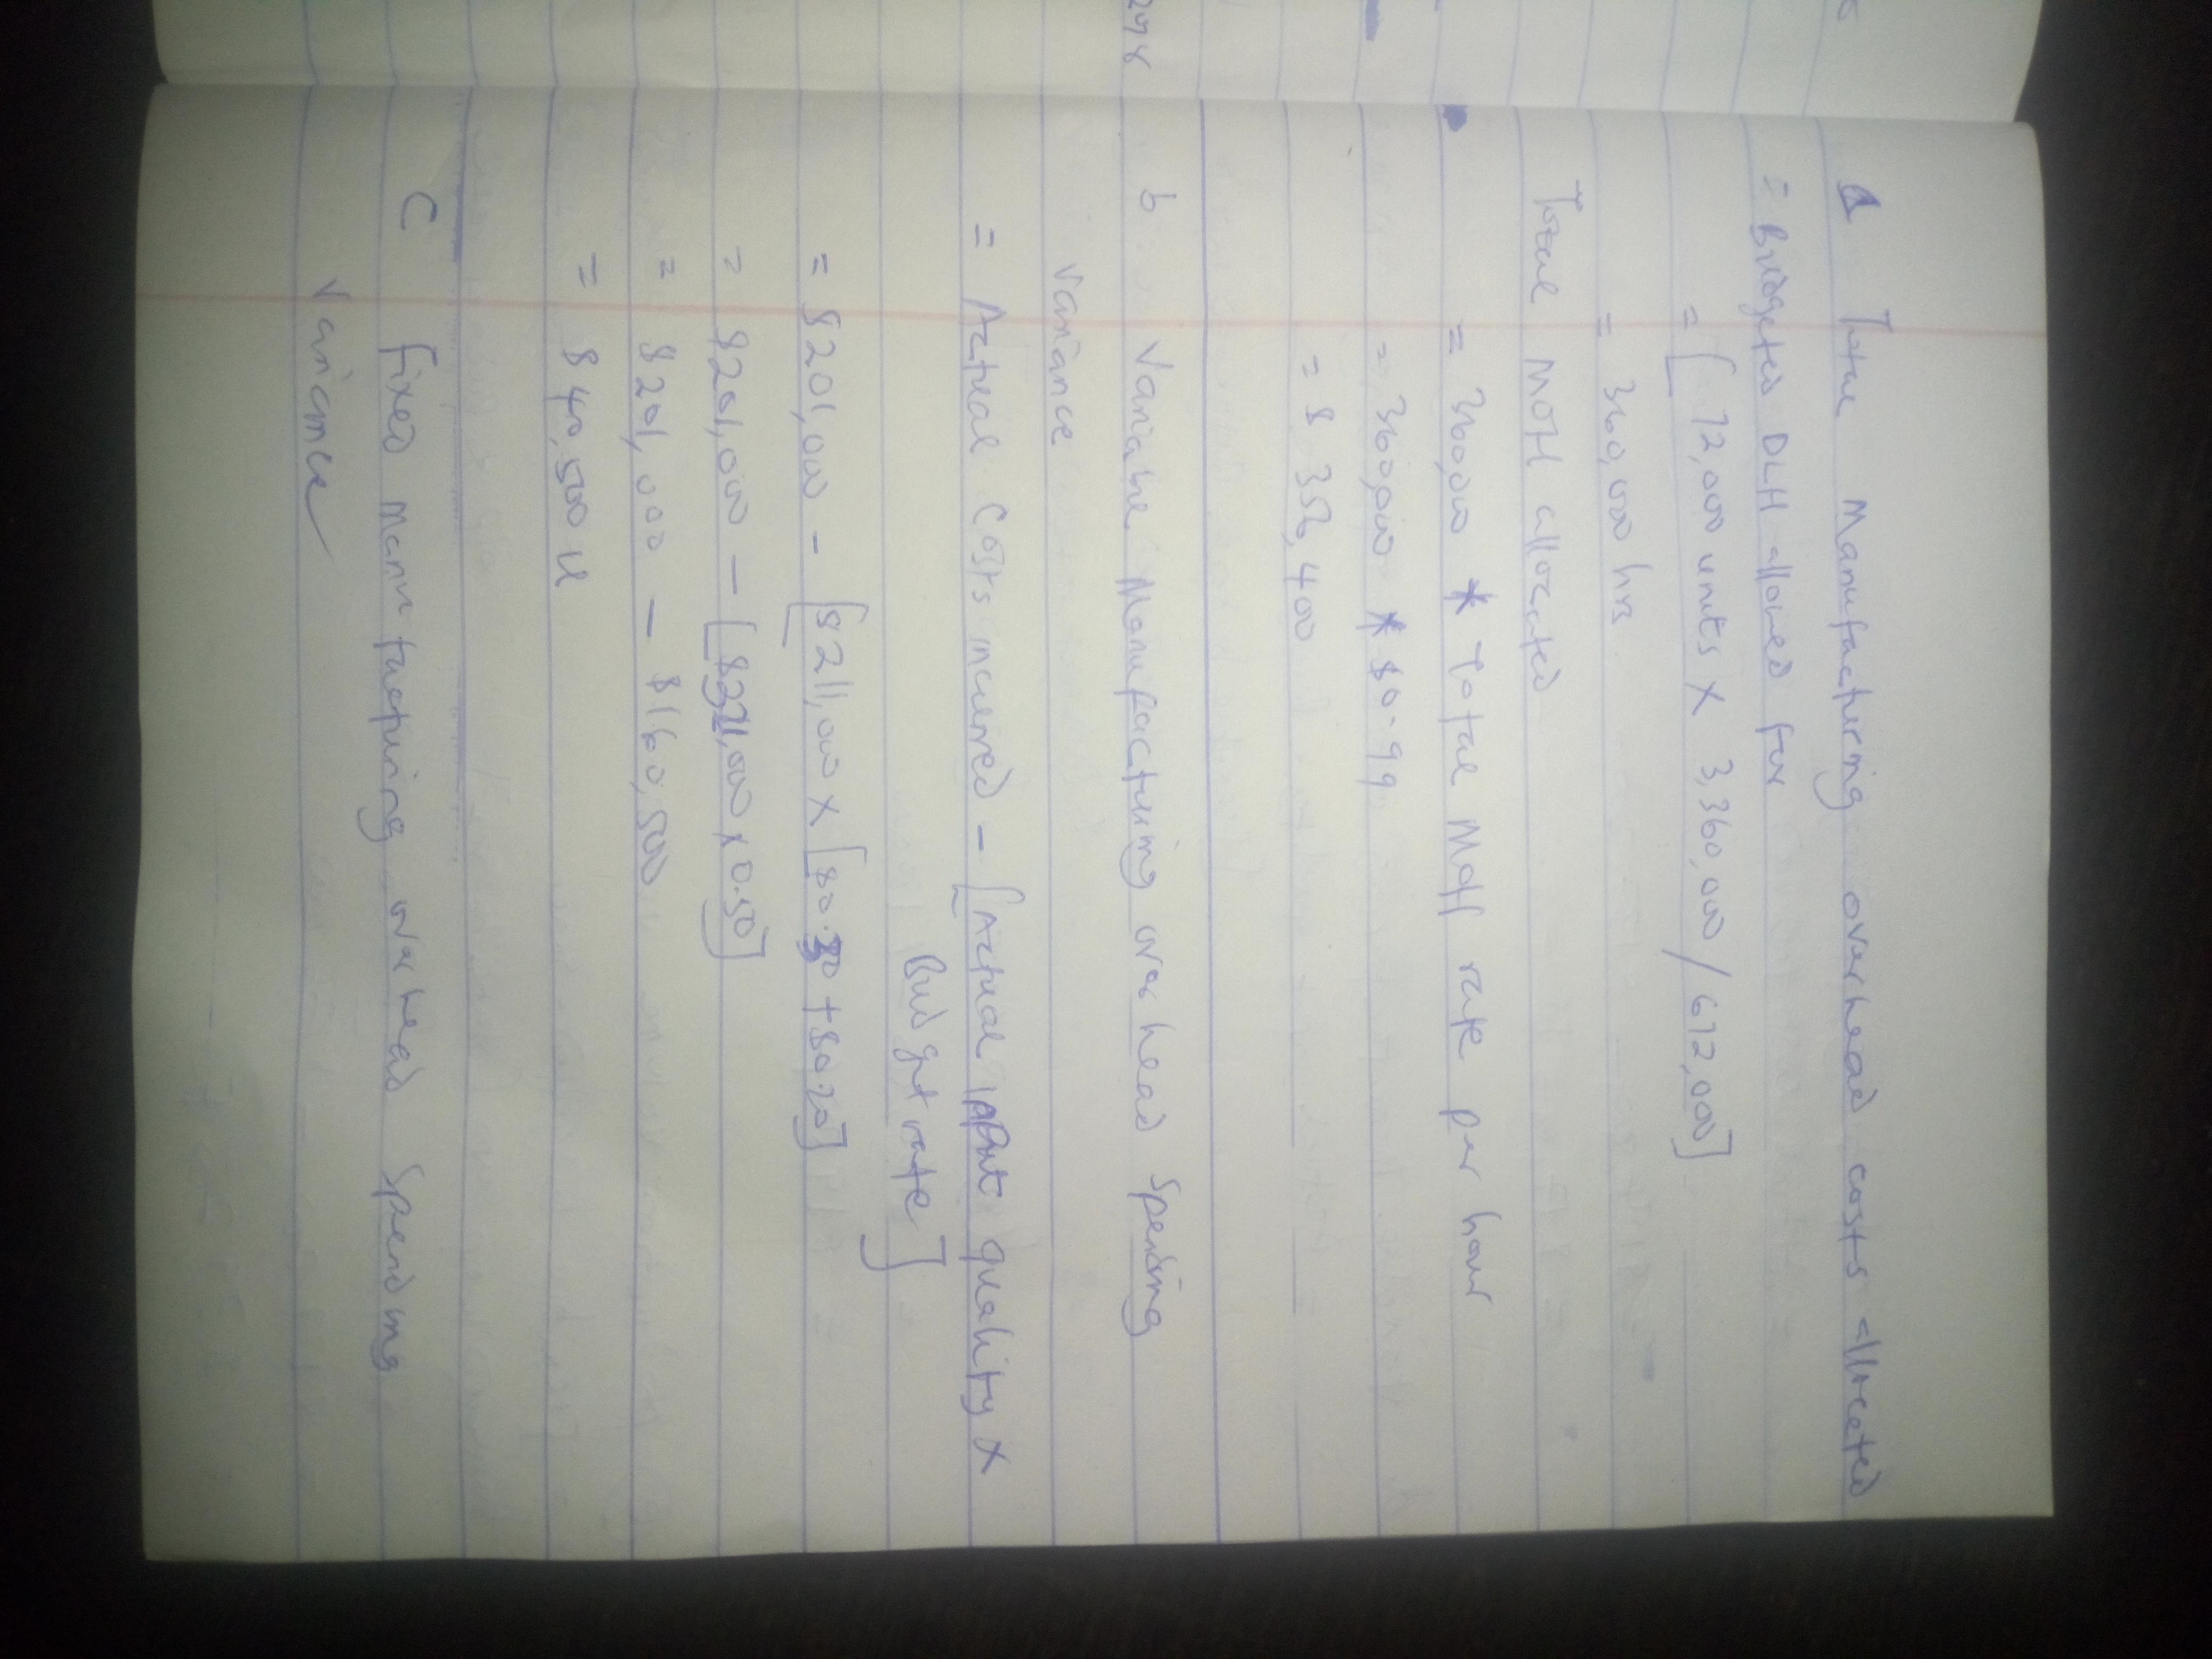 a Total Manufacturing overhead costs allocated
= Budgeted DLH allowed for
= [72,000 units X 3,360,000 / 672,000]
= 360,000 hrs
Total MOH allocated
= 360,000 * Total MOH rate per hour
= 360,000 * $0.99
= $ 356,400
b Variable Manufacturing overhead Spending
Variance
= Actual Costs incurred - [Actual input quality X
Budget rate]
= $201,000 - [$211,000 X [$0.30 + $0.20]
= $201,000 - [$321,000 X 0.50]
= $201,000 - $160,500
= $40,500 U
C Fixed manufacturing overhead Spending
Variance